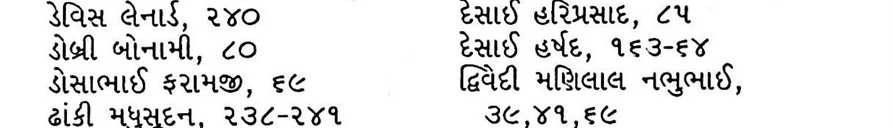 ડેવિસ લેનાર્ડ, ૨૪૦
ડોબ્રી બોનામી, ૮૦
ડોસાભાઈ ફરામજી, ૬૯
ઢાંકી મધુસુદન, ૨૩૮-૨૪૧
દેસાઈ હરિપ્રસાદ, ૮૫
દેસાઈ હર્ષદ, ૧૬૩-૬૪
દ્વિવેદી મણિલાલ નભુભાઈ,
૩૯,૪૧,૬૯